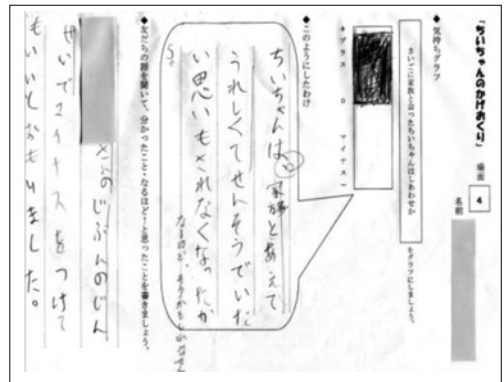 「ちいちゃんのかげおくり」 場面 4
名前
◆気持ちグラフ
さいごに家族と会ったちいちゃんはしあわせか をグラフにしましょう。
+プラス 0 マイナス-
◆このようにしたわけ
ちいちゃんは、家族とあえて
うれしくてせんそうでいた
い思いもされなくなったか
ら。
なるほど、そうかもしれません
◆友だちの話を聞いて、分かったこと・なるほど!と思ったことを書きましょう。
さんのじぶんのじん
せいでマイナスをつけて
もいいとおもいました。